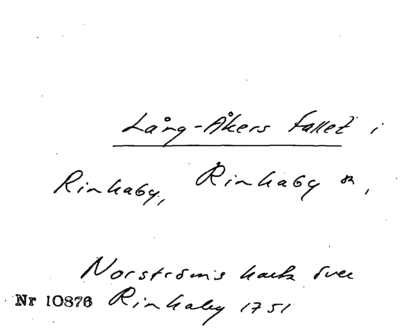 Lång-Åkers fallet i
Rinkaby, Rinkaby sn,
Norströms karta över
Nr 10876 Rinkaby 1751